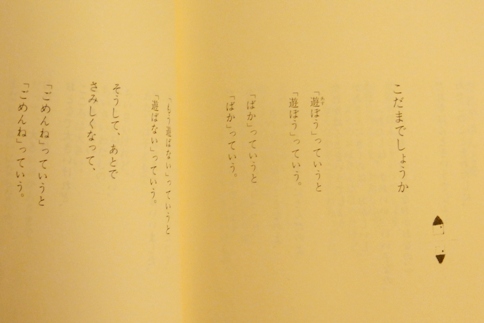 こだまでしょうか
「遊ぼう」っていうと
「遊ぼう」っていう。
「ばか」っていうと
「ばか」っていう。
「もう遊ばない」っていうと
「遊ばない」っていう。
そうして、あとで
さみしくなって、
「ごめんね」っていうと
「ごめんね」っていう。